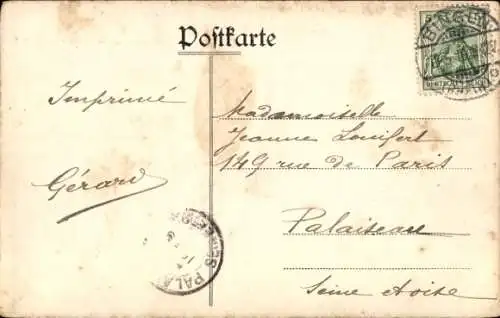 Postkarte
Imprimé
Gérard
Mademoiselle
Jeanne
149 rue de Paris
Palaiseau
Seine & Oise
BINGEN
5
PALA